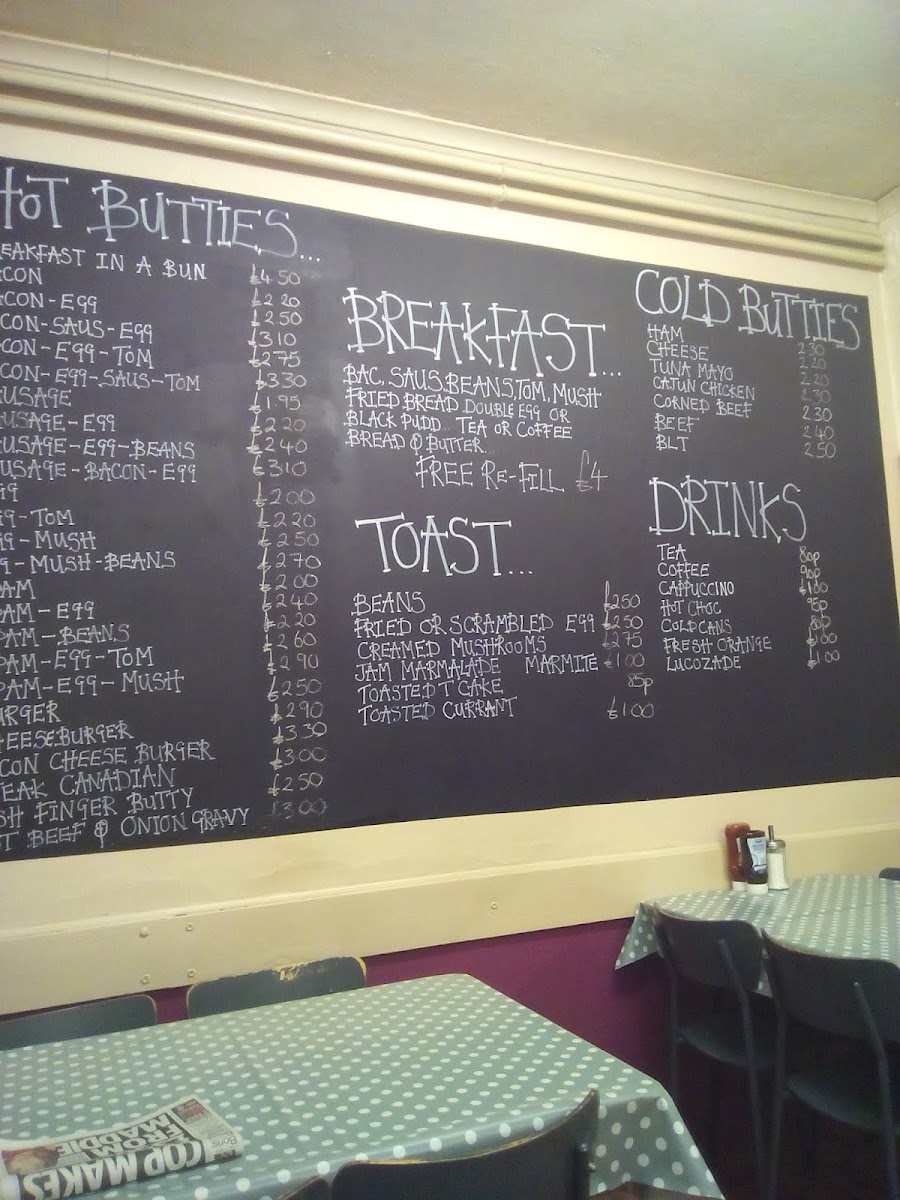 HOT BUTTIES...
EAKFAST IN A BUN £4.50
CON £2.20
CON-EGG £2.50
CON-SAUS-EGG £3.10
CON-EGG-TOM £2.75
CON-EGG-SAUS-TOM £3.30
USAGE £1.95
USAGE-EGG £2.20
USAGE-EGG-BEANS £2.40
USAGE-BACON-EGG £3.10
GG £2.00
GG-TOM £2.20
GG-MUSH £2.50
G-MUSH-BEANS £2.70
PAM £2.00
PAM-EGG £2.40
PAM-BEANS £2.20
PAM-EGG-TOM £2.60
PAM-EGG-MUSH £2.90
URGER £2.50
HEESEBURGER £2.90
CON CHEESE BURGER £3.30
EAK CANADIAN £3.00
SH FINGER BUTTY £2.50
T BEEF & ONION GRAVY £3.00
BREAKFAST...
BAC, SAUS, BEANS, TOM, MUSH
FRIED BREAD, DOUBLE EGG OR
BLACK PUDD... TEA OR COFFEE
BREAD & BUTTER...
FREE RE-FILL £4
TOAST...
BEANS £2.50
FRIED OR SCRAMBLED EGG £2.50
CREAMED MUSHROOMS £2.75
JAM MARMALADE MARMITE £1.00
TOASTED T'CAKE 85p
TOASTED CURRANT £1.00
COLD BUTTIES
HAM 2.30
CHEESE 2.20
TUNA MAYO 2.20
CAJUN CHICKEN 2.30
CORNED BEEF 2.30
BEEF 2.40
BLT 2.50
DRINKS
TEA 80p
COFFEE 90p
CAPPUCCINO £1.00
HOT CHOC 95p
COLD CANS 80p
FRESH ORANGE £1.00
LUCOZADE £1.00
COP MAKES
FROM
MADDIE